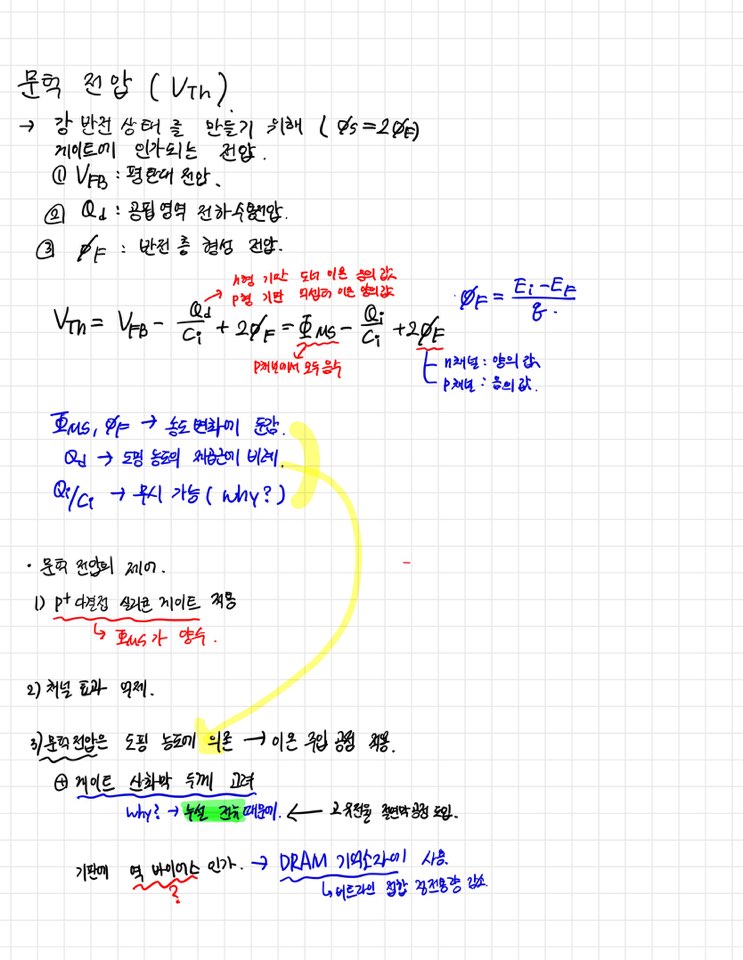 문턱 전압 (V_Th).
→ 강 반전 상태를 만들기 위해 (φs=2φF)
게이트에 인가되는 전압.
① V_FB : 평탄대 전압.
② Qd : 공핍영역 전하수용전압.
③ φF : 반전 층 형성 전압.
n형 기판 도너 이온 음의값
p형 기판 억셉터 이온 양의값
V_Th = V_FB - Qd/Ci + 2φF = Φ_MS - Qi/Ci + 2φF
φF = (Ei - EF)/q.
p채널에서 모두 음수
n채널 : 양의 값
p채널 : 음의 값.
Φ_MS, φF → 농도변화에 둔감.
Qd → 도핑 농도의 제곱근에 비례.
Qi/Ci → 무시 가능 (why?)
· 문턱 전압의 제어.
1) p+ 다결정 실리콘 게이트 적용
↳ Φ_MS가 양수.
2) 채널 효과 억제.
3) 문턱전압은 도핑 농도에 의존 → 이온 주입 공정 적용.
⊕ 게이트 산화막 두께 고려
why? → 누설 전류 때문에. ← 고유전율 절연막공정 도입.
기판에 역 바이어스 인가. → DRAM 기억소자에 사용.
?
↳ 비트라인 접합 정전용량 감소.